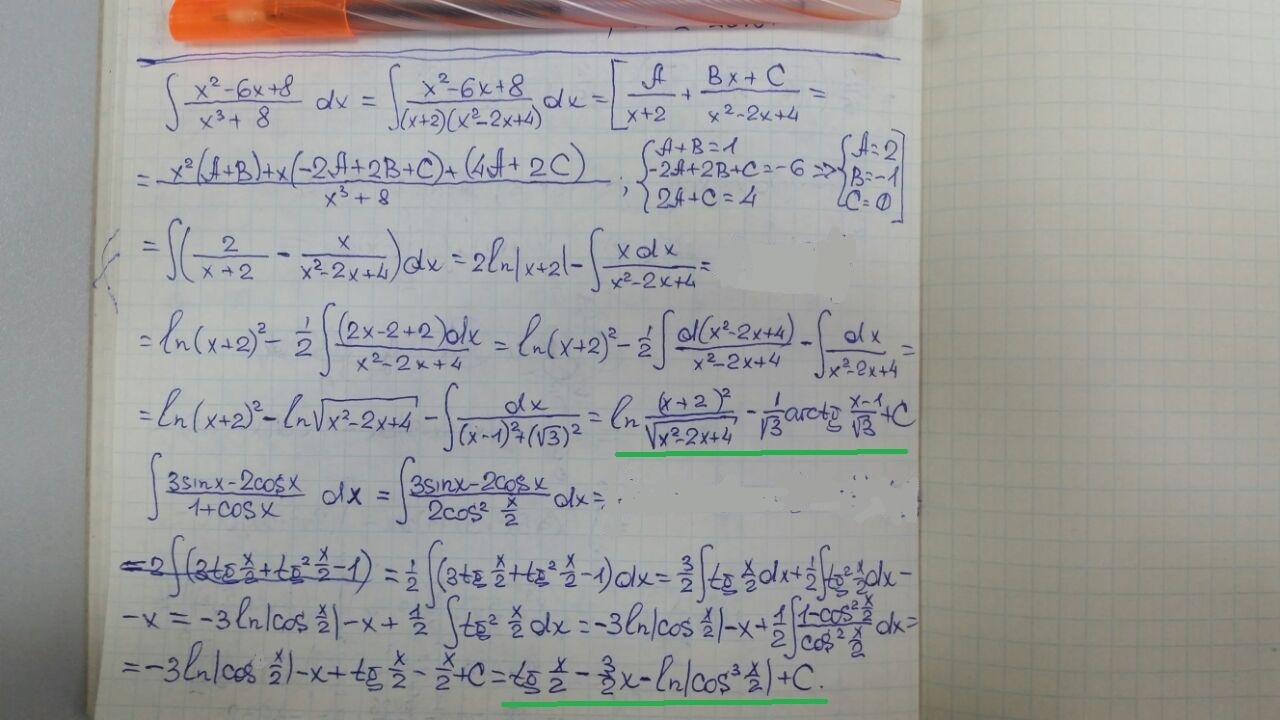 ∫ (x²-6x+8)/(x³+8) dx = ∫ (x²-6x+8)/((x+2)(x²-2x+4)) dx = [ A/(x+2) + (Bx+C)/(x²-2x+4) =
= (x²(A+B)+x(-2A+2B+C)+(4A+2C))/(x³+8) ; { A+B=1 -2A+2B+C=-6 2A+C=4 => { A=2 B=-1 C=0 ]
= ∫ (2/(x+2) - x/(x²-2x+4)) dx = 2ln|x+2| - ∫ xdx/(x²-2x+4) =
= ln(x+2)² - 1/2 ∫ (2x-2+2)dx/(x²-2x+4) = ln(x+2)² - 1/2 ∫ d(x²-2x+4)/(x²-2x+4) - ∫ dx/(x²-2x+4) =
= ln(x+2)² - ln√(x²-2x+4) - ∫ dx/((x-1)²+(√3)²) = ln (x+2)²/√(x²-2x+4) - 1/√3 arctg (x-1)/√3 + C
∫ (3sinx-2cosx)/(1+cosx) dx = ∫ (3sinx-2cosx)/(2cos² x/2) dx =
= 2∫(3tg x/2 + tg² x/2 - 1) = 1/2 ∫(3tg x/2 + tg² x/2 - 1)dx = 3/2 ∫ tg x/2 dx + 1/2 ∫ tg² x/2 dx -
-x = -3ln|cos x/2| - x + 1/2 ∫ tg² x/2 dx = -3ln|cos x/2| - x + 1/2 ∫ (1-cos² x/2)/(cos² x/2) dx =
= -3ln|cos x/2| - x + tg x/2 - x/2 + C = tg x/2 - 3/2 x - ln|cos³ x/2| + C.